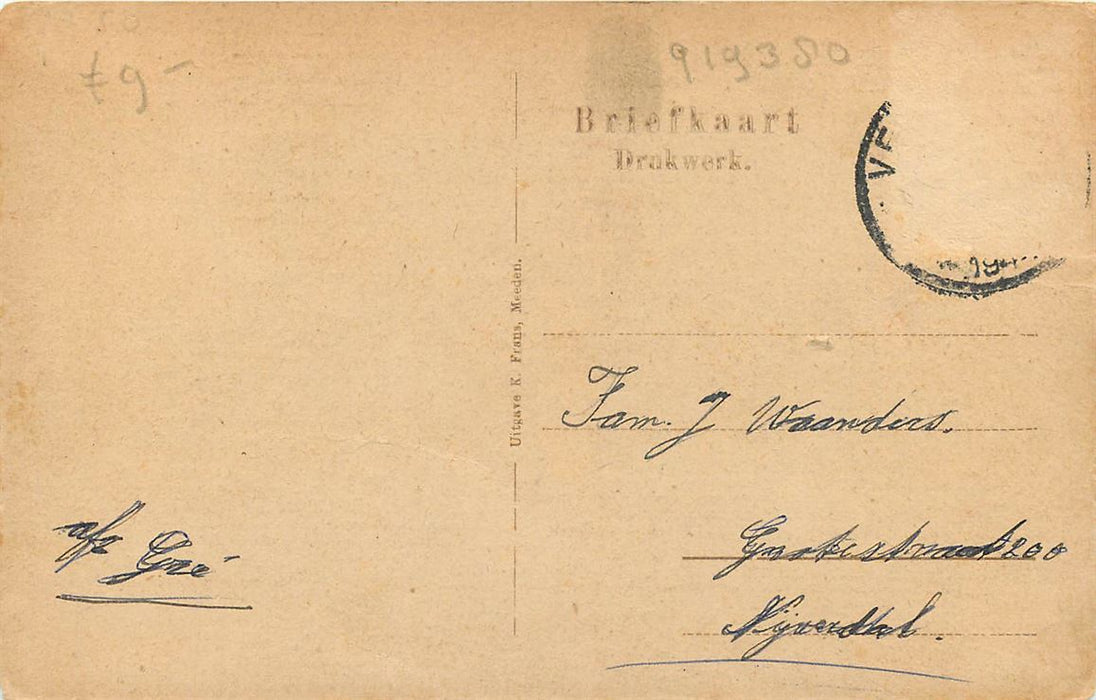 €9-
919380
Briefkaart
Drukwerk.
Uitgave K. Frans, Meeden.
Fam. J Waanders.
Grotestraat 200
Nijverdal.
afz Gré